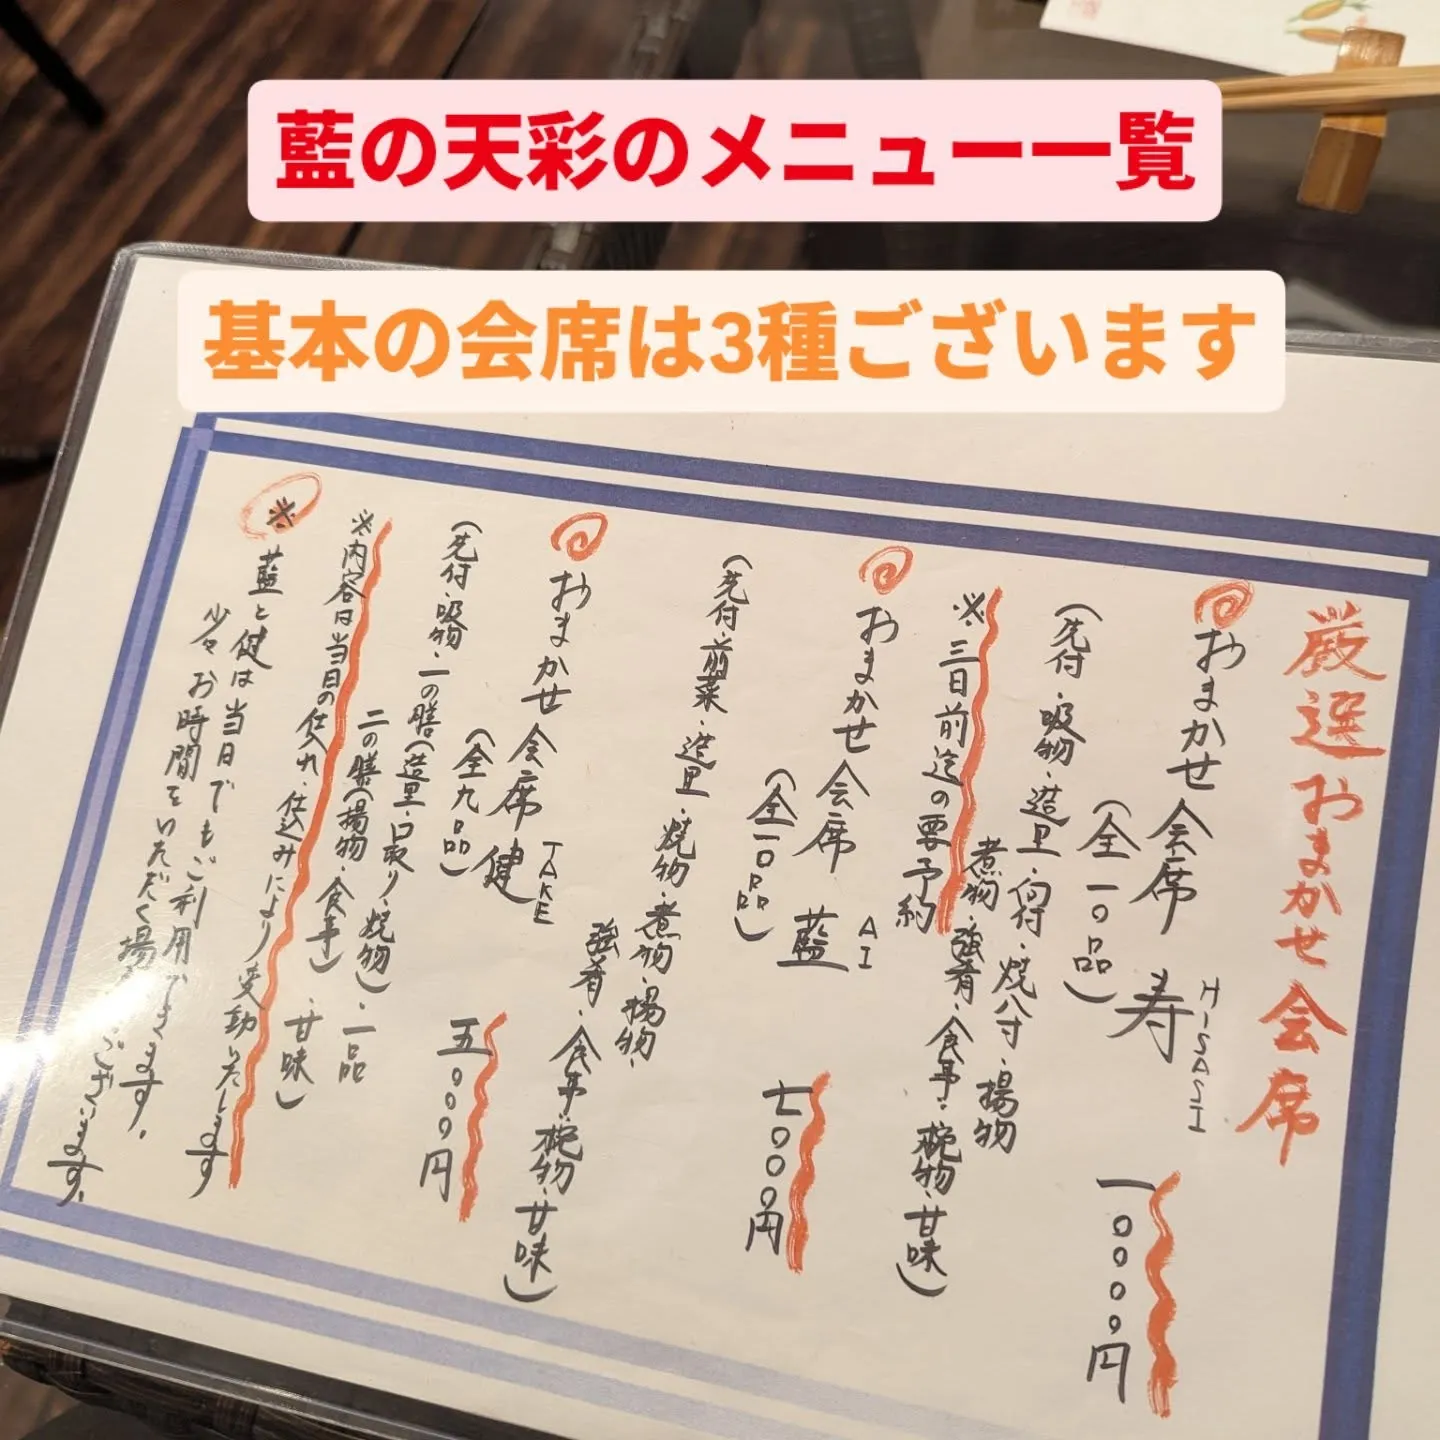 藍の天彩のメニュー一覧
基本の会席は3種ございます
厳選おまかせ会席
おまかせ会席 寿 HISASI
(全一〇品)
一〇〇〇〇円
(先付・吸物・造里・向付・焼八寸・揚物
煮物・強肴・食事・椀物・甘味)
※三日前迄の要予約
おまかせ会席 藍 AI
(全一〇品)
七〇〇〇円
(先付・前菜・造里・焼物・煮物・揚物・
強肴・食事・椀物・甘味)
おまかせ会席 健 TAKE
(全九品)
五〇〇〇円
(先付・吸物・一の膳(造里・口取り・焼物)・一品
二の膳(揚物・食事)・甘味)
※内容は当日の仕入れ・仕込みにより変動いたします
※藍と健は当日でもご利用できます。
少々お時間をいただく場ございます。